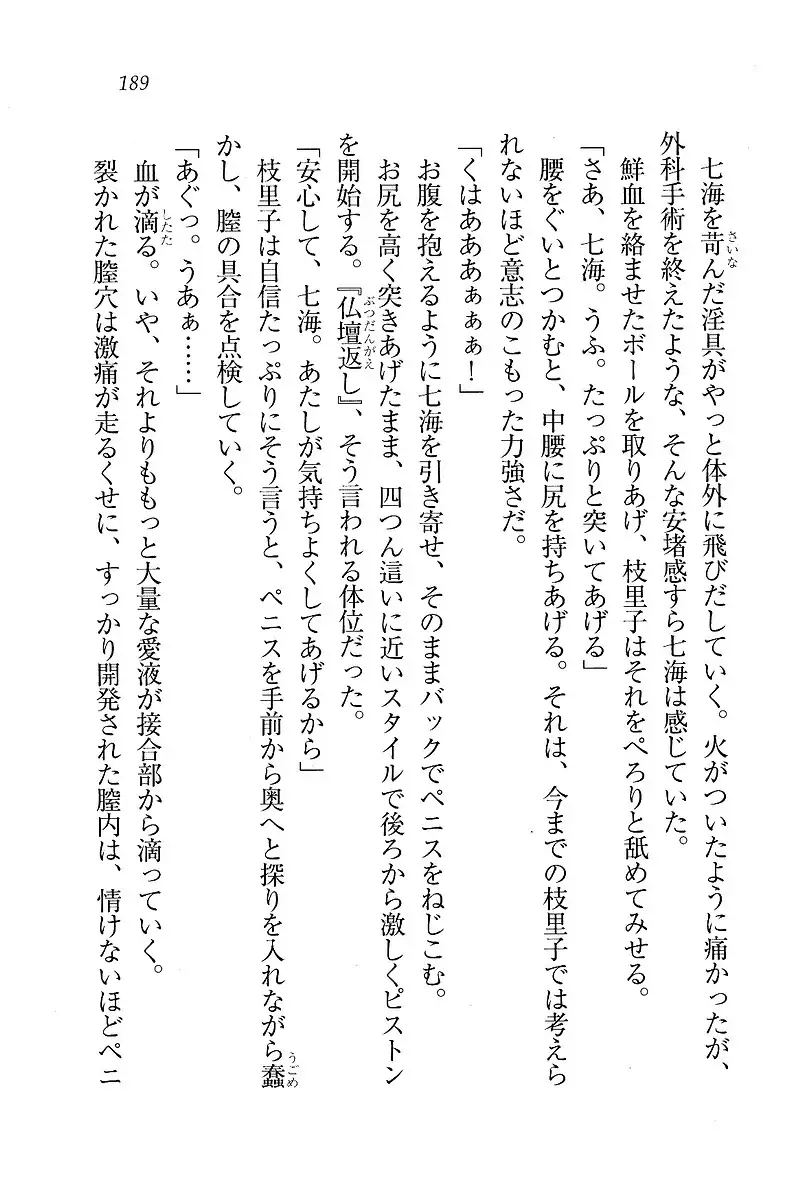 189
七海を苛んだ淫具がやっと体外に飛びだしていく。火がついたように痛かったが、
外科手術を終えたような、そんな安堵感すら七海は感じていた。
鮮血を絡ませたボールを取りあげ、枝里子はそれをぺろりと舐めてみせる。
「さあ、七海。うふ。たっぷりと突いてあげる」
腰をぐいとつかむと、中腰に尻を持ちあげる。それは、今までの枝里子では考えら
れないほど意志のこもった力強さだ。
「くはあああぁぁぁ!」
お腹を抱えるように七海を引き寄せ、そのままバックでペニスをねじこむ。
お尻を高く突きあげたまま、四つん這いに近いスタイルで後ろから激しくピストン
を開始する。『仏壇返し』、そう言われる体位だった。
「安心して、七海。あたしが気持ちよくしてあげるから」
枝里子は自信たっぷりにそう言うと、ペニスを手前から奥へと探りを入れながら蠢
かし、膣の具合を点検していく。
「あぐっ。うあぁ……」
血が滴る。いや、それよりももっと大量な愛液が接合部から滴っていく。
裂かれた膣穴は激痛が走るくせに、すっかり開発された膣内は、情けないほどペニ